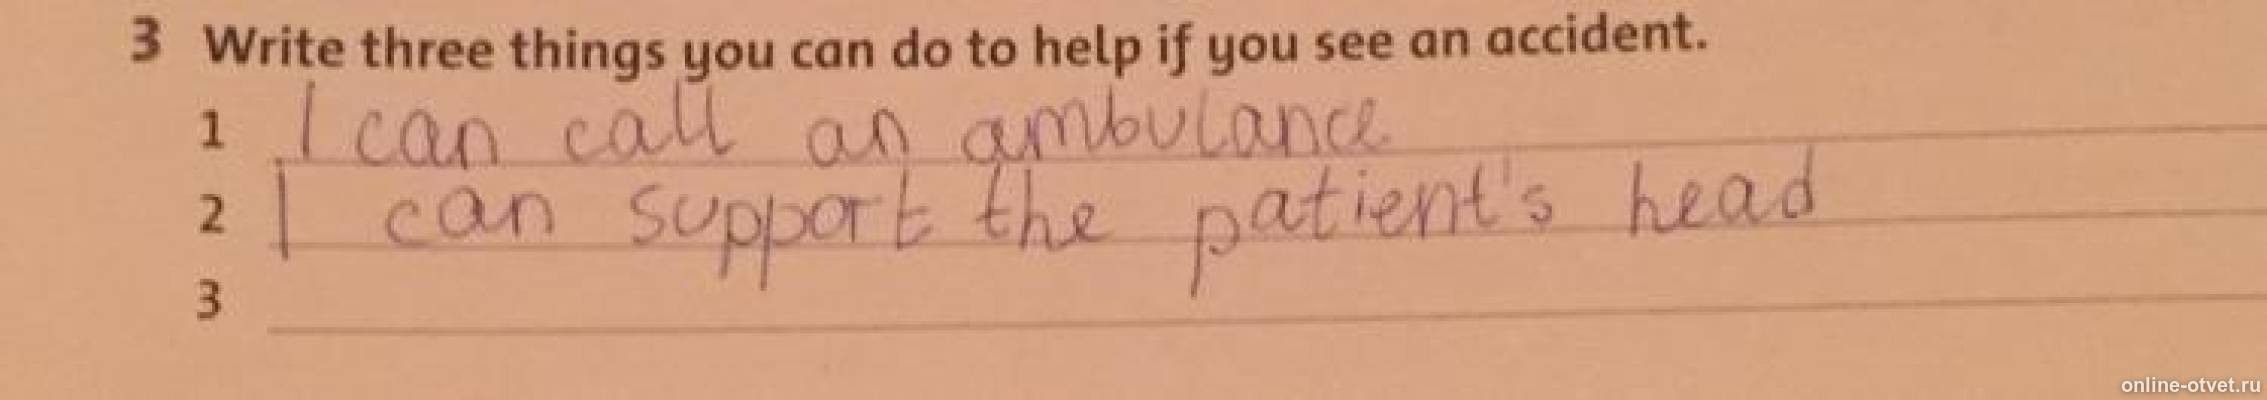 3 Write three things you can do to help if you see an accident.
1 I can call an ambulance
2 I can support the patient's head
3
online-otvet.ru